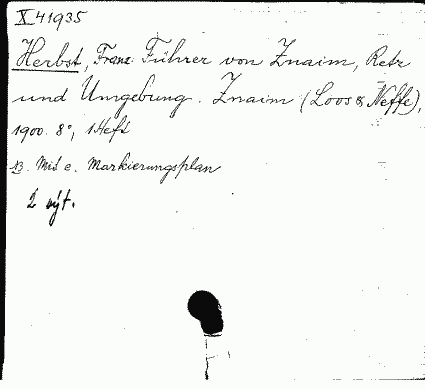 X 41935
Herbst, Franz: Führer von Znaim, Retz
und Umgebung. Znaim (Loos & Neffe),
1900. 8°, 1 Heft
NB. Mit e. Markierungsplan
2 výt.